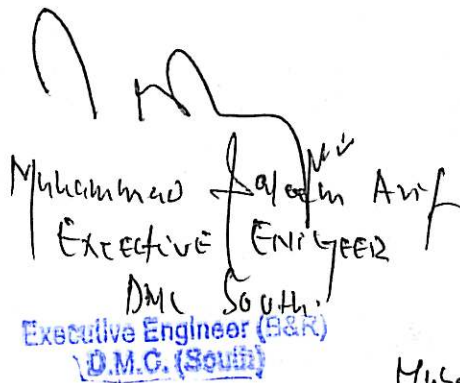 Muhammad Saleem Arif
Executive Engineer
DMC South.
Executive Engineer (B&R)
D.M.C. (South)